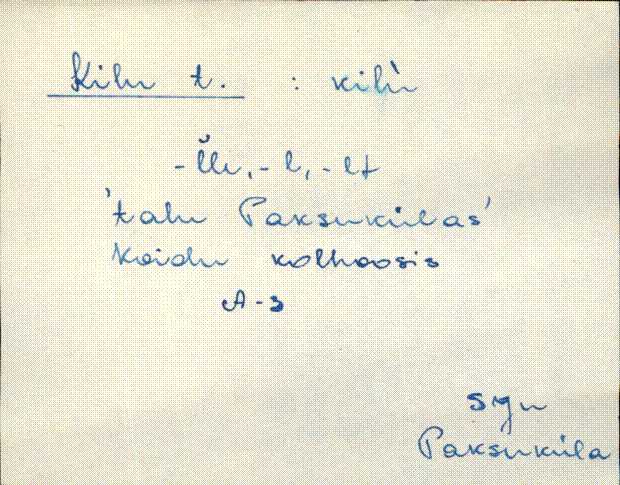 Kilu t. : kilù
-l̆le, -l, -lt
'talu Paksukülas'
Koidu kolhoosis
A-3
Sgu
Paksuküla